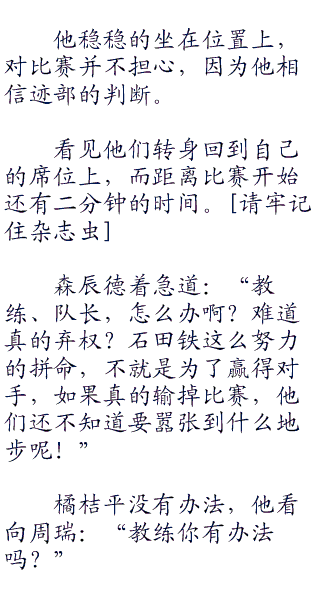 他稳稳的坐在位置上，
对比赛并不担心，因为他相
信迹部的判断。
看见他们转身回到自己
的席位上，而距离比赛开始
还有二分钟的时间。[请牢记
住杂志虫]
森辰德着急道：“教
练、队长，怎么办啊？难道
真的弃权？石田铁这么努力
的拼命，不就是为了赢得对
手，如果真的输掉比赛，他
们还不知道要嚣张到什么地
步呢！”
橘桔平没有办法，他看
向周瑞：“教练你有办法
吗？”